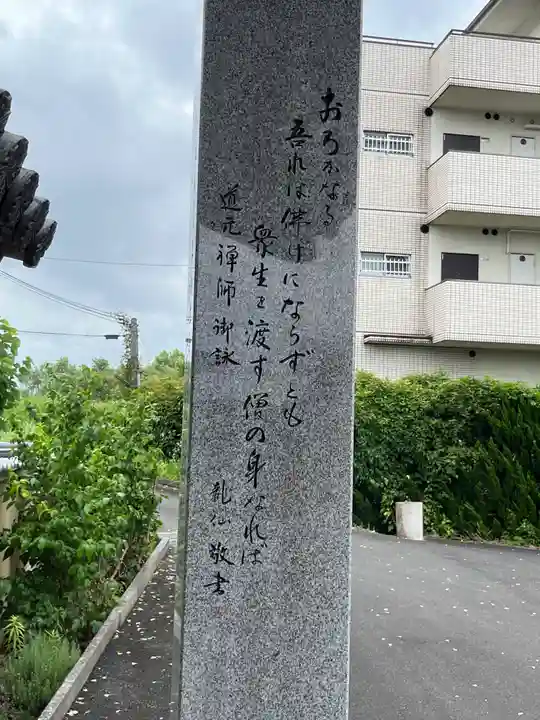 おろかなる
吾れは佛けにならずとも
衆生を渡す僧の身なれば
道元禅師御詠
龍仙 敬書